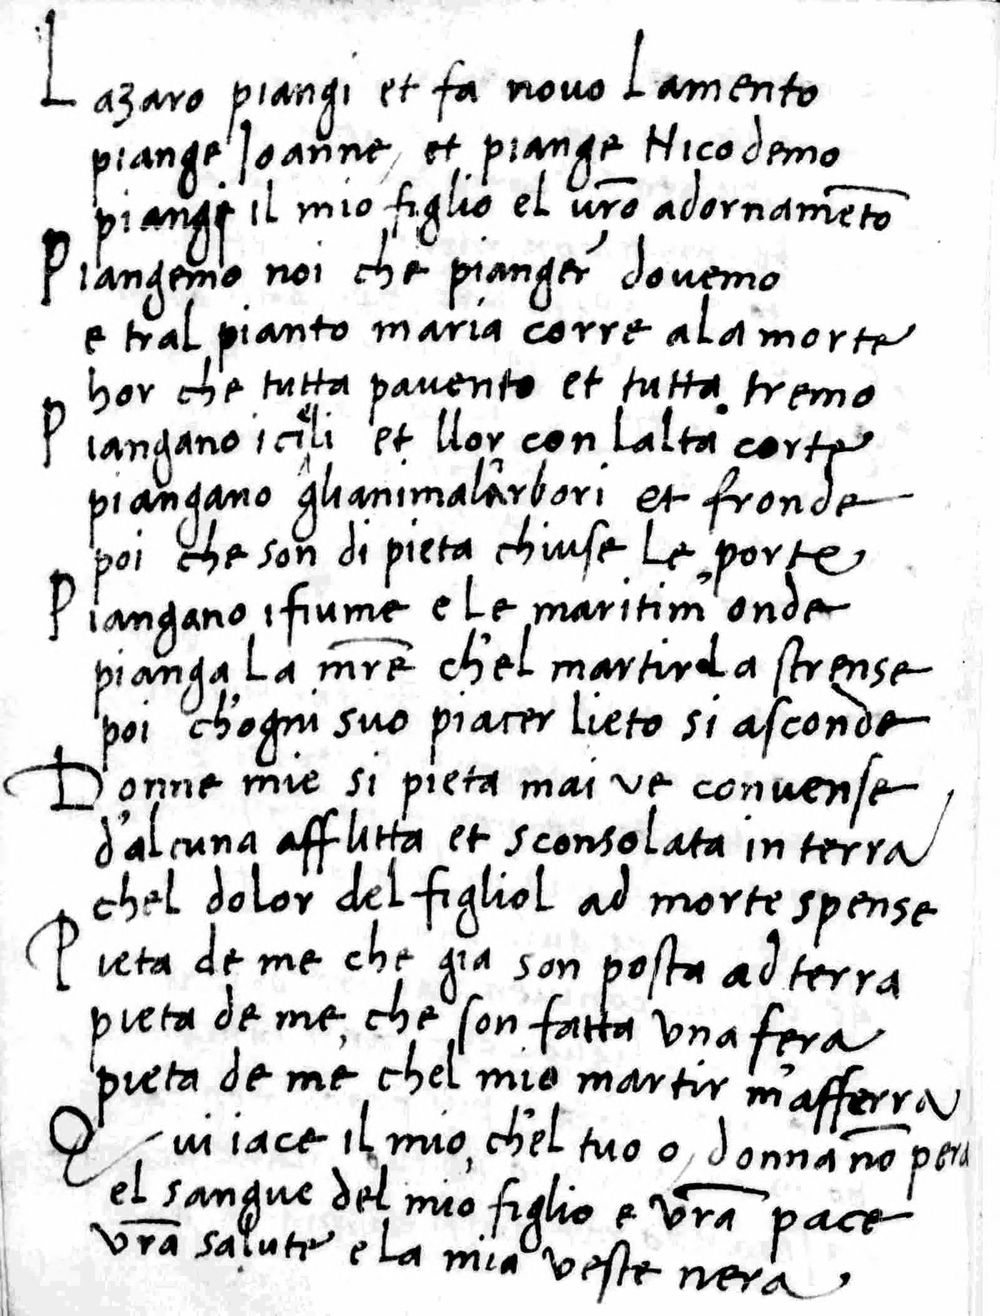 Lazaro piangi et fa novo Lamento
piange Joanne, et piange Nicodemo
piangi il mio figlio el vr̃o adornamẽto
Piangemo noi che pianger' dovemo
e tral pianto maria corre ala morte
hor che tutta pavento et tutta tremo
Piangano i cieli et llor con lalta corte
piangano glianimal' arbori et fronde
poi che son di pieta chiuse Le porte
Piangano i fiume e Le maritim' onde
pianga La mr̃e ch'el martir La strense
poi ch'ogni suo piacer lieto si asconde
Donne mie si pieta mai ve convense
d'alcuna afflitta et sconsolata in terra
chel dolor del figliol ad morte spense
Pieta de me che gia son posta ad terra
pieta de me, che son fatta una fera
pieta de me' chel mio martir m'afferra
Qui iace il mio, ch'el tuo o, donna nõ pera
el sangue del mio figlio e vr̃a pace
vr̃a salute e La mia veste nera,